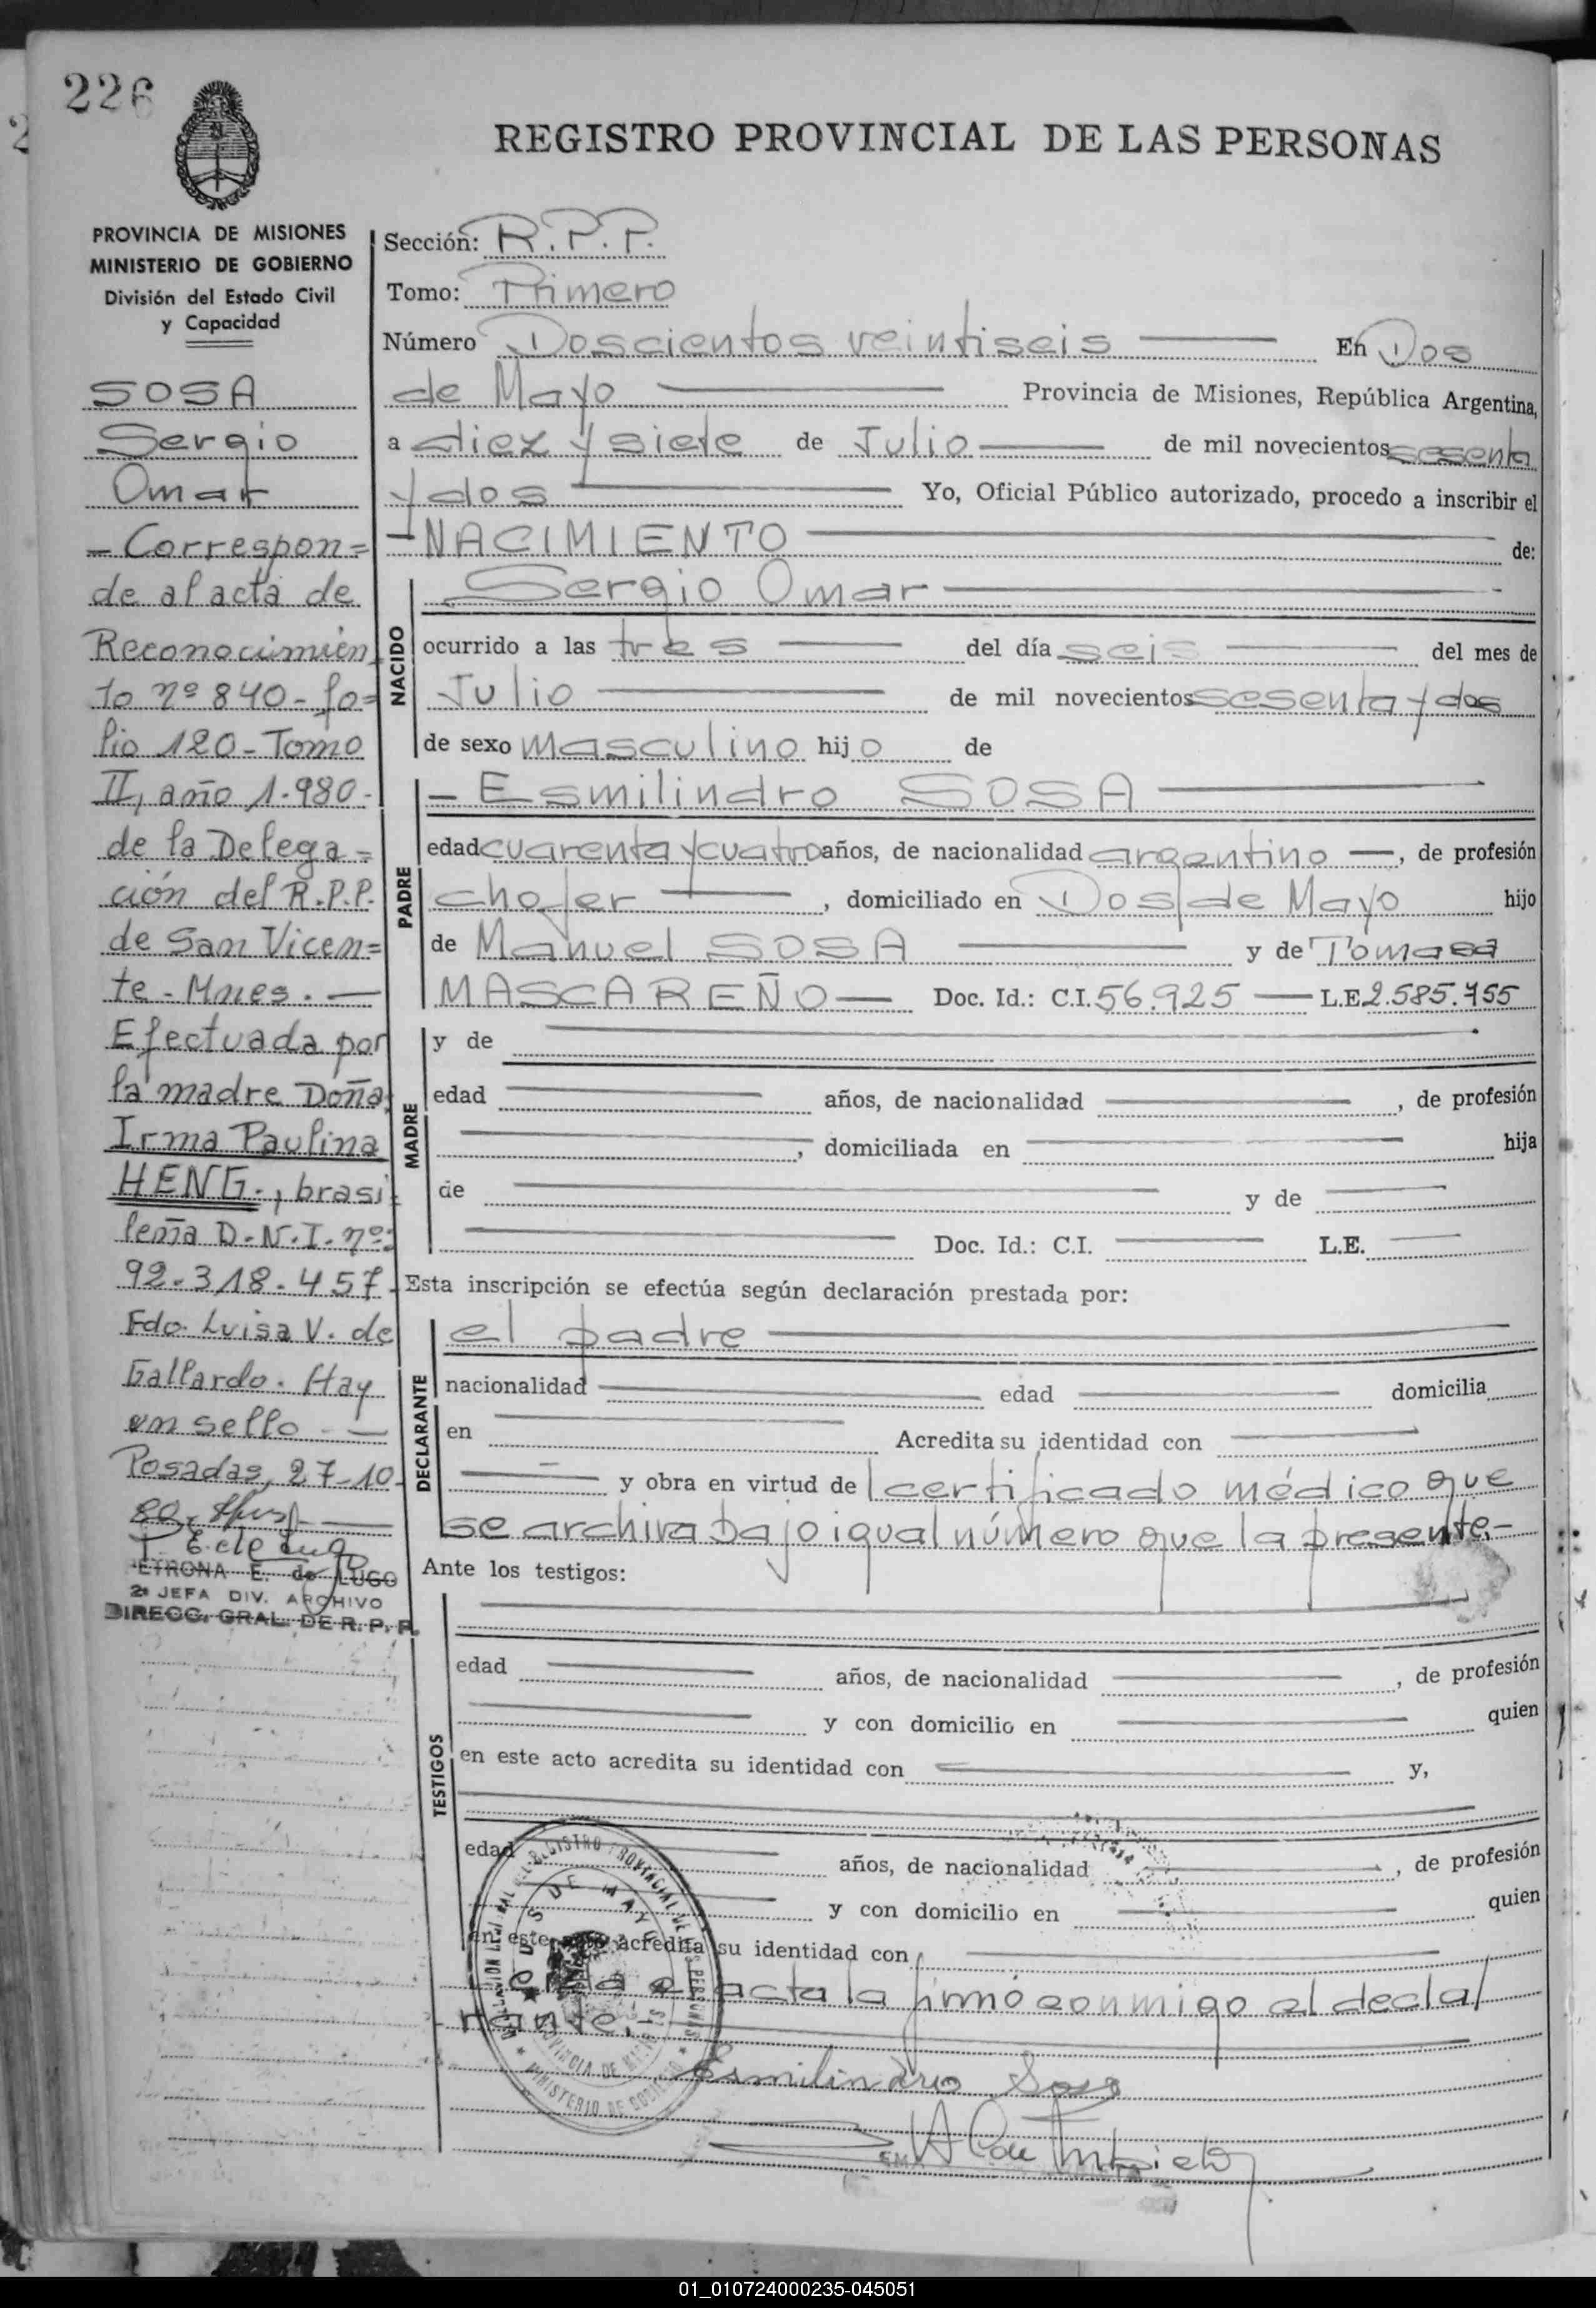 226
REGISTRO PROVINCIAL DE LAS PERSONAS
PROVINCIA DE MISIONES
MINISTERIO DE GOBIERNO
División del Estado Civil
y Capacidad
SOSA
Sergio
Omar
- Correspon=
de al acta de
Reconocimien
to nº 840 - fo=
lio 120 - Tomo
II, año 1.980 -
de la Delega=
ción del R.P.P.
de San Vicen=
te - Mnes. —
Efectuada por
la madre Doña
Irma Paulina
HENG., brasi
leña D.N.I. nº:
92.318.457
Fdo. Luisa V. de
Gallardo. Hay
un sello - —
Posadas, 27-10-
80.
ETRONA E. de LUGO
2ª JEFA DIV. ARCHIVO
DIRECC. GRAL. DE R. P. P.
Sección: R.P.P.
Tomo: Primero
Número Doscientos veintiseis — En Dos
de Mayo — Provincia de Misiones, República Argentina,
a diez y siete de Julio — de mil novecientos sesenta
y dos — Yo, Oficial Público autorizado, procedo a inscribir el
- NACIMIENTO — de:
NACIDO
Sergio Omar —
ocurrido a las tres — del día seis — del mes de
Julio — de mil novecientos sesenta y dos
de sexo masculino hijo de
PADRE
- Esmilindro SOSA —
edad cuarenta y cuatro años, de nacionalidad argentino —, de profesión
chofer —, domiciliado en Dos de Mayo hijo
de Manuel SOSA — y de Tomasa
MASCAREÑO — Doc. Id.: C.I. 56.925 — L.E 2.585.755
MADRE
y de —
edad — años, de nacionalidad —, de profesión
—, domiciliada en — hija
de — y de —
— Doc. Id.: C.I. — L.E. —
Esta inscripción se efectúa según declaración prestada por:
DECLARANTE
el padre —
nacionalidad — edad — domicilia
en — Acredita su identidad con —
— y obra en virtud de l certificado médico que
se archiva bajo igual número que la presente.-
Ante los testigos:
TESTIGOS
edad — años, de nacionalidad —, de profesión
— y con domicilio en — quien
en este acto acredita su identidad con — y,
edad — años, de nacionalidad —, de profesión
— y con domicilio en — quien
en este acto acredita su identidad con —
acta la firmó conmigo el decla
rante.
Esmilindro Sosa
REGISTRO PROVINCIAL DE LAS PERSONAS
DOS DE MAYO
PROVINCIA DE MISIONES
MINISTERIO DE GOBIERNO
01_010724000235-045051